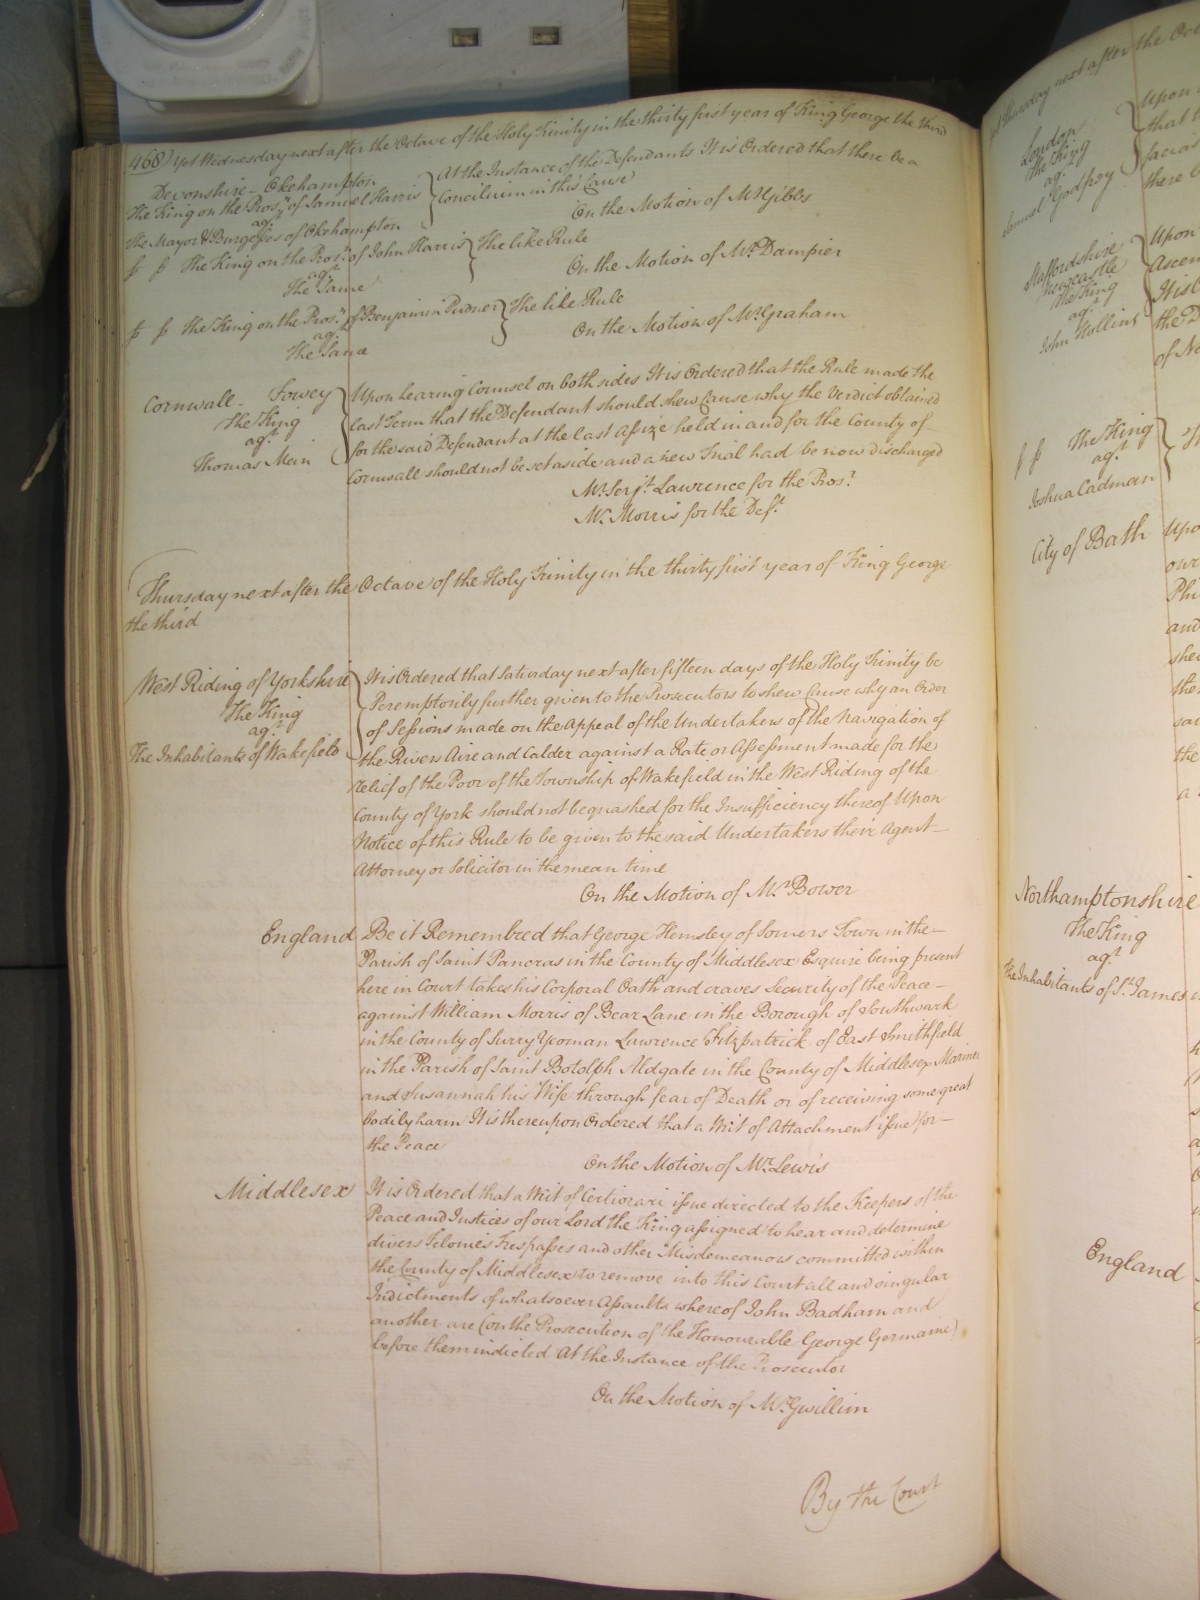 468) Yet Wednesday next after the Octave of the Holy Trinity in the thirty first year of King George the third
Devonshire - Okehampton
The King on the Pros.n of Samuel Harris
ag.t
The Mayor & Burgesses of Okehampton
At the Instance of the Defendants It is Ordered that there be a
Concilium in this Cause
On the Motion of Mr. Gibbs
fs fs The King on the Pros.n of John Harris
ag.t
The Same
The like Rule
On the Motion of Mr. Dampier
fs fs The King on the Pros.n of Benjamin Pudner
ag.t
The Same
The like Rule
On the Motion of Mr. Graham
Cornwall - Fowey
The King
ag.t
Thomas Mein
Upon hearing Counsel on both sides It is Ordered that the Rule made the
last Term that the Defendant should shew Cause why the Verdict obtained
for the said Defendant at the last Assize held in and for the County of
Cornwall should not be set aside and a new Trial had be now discharged
Mr. Serjt. Lawrence for the Pros.r
Mr. Morris for the Def.t
Thursday next after the Octave of the Holy Trinity in the thirty first year of King George
the third
West Riding of Yorkshire
The King
ag.t
The Inhabitants of Wakefield
It is Ordered that Saturday next after fifteen days of the Holy Trinity be
Peremptorily further given to the Prosecutors to shew Cause why an Order
of Sessions made on the Appeal of the Undertakers of the Navigation of
the Rivers Aire and Calder against a Rate or Assessment made for the
relief of the Poor of the Township of Wakefield in the West Riding of the
County of York should not be quashed for the Insufficiency thereof Upon
Notice of this Rule to be given to the said Undertakers their Agent
Attorney or Solicitor in the mean time
On the Motion of Mr. Bower
England
Be it Remembred that George Hemsley of Somers Town in the
Parish of Saint Pancras in the County of Middlesex Esquire being present
here in Court takes his Corporal Oath and craves Security of the Peace
against William Morris of Bear Lane in the Borough of Southwark
in the County of Surry Yeoman Lawrence Fitzpatrick of East Smithfield
in the Parish of Saint Botolph Aldgate in the County of Middlesex Mariner
and Susannah his Wife through fear of Death or of receiving some great
bodily harm It is thereupon Ordered that a Writ of Attachment issue for
the Peace
On the Motion of Mr. Lewis
Middlesex
It is Ordered that a Writ of Certiorari issue directed to the Keepers of the
Peace and Justices of our Lord the King assigned to hear and determine
divers Felonies Trespasses and other Misdemeanors committed within
the County of Middlesex to remove into this Court all and singular
Indictments of whatsoever Assaults whereof John Badham and
another are (on the Prosecution of the Honourable George Germaine)
before them indicted At the Instance of the Prosecutor
On the Motion of Mr. Gwillim
By the Court
Thursday next after the
London
The King
ag.t
Samuel Godfrey
Upon
that
facias
there
Staffordshire
Newcastle
The King
ag.t
John Hollins
Upon
Ascen
It is
the D
of N
fs fs The King
ag.t
Joshua Cadman
City of Bath
Upo
our
Phi
and
shew
the
sai
the
a
Northamptonshire
The King
ag.t
The Inhabitants of St. James
England